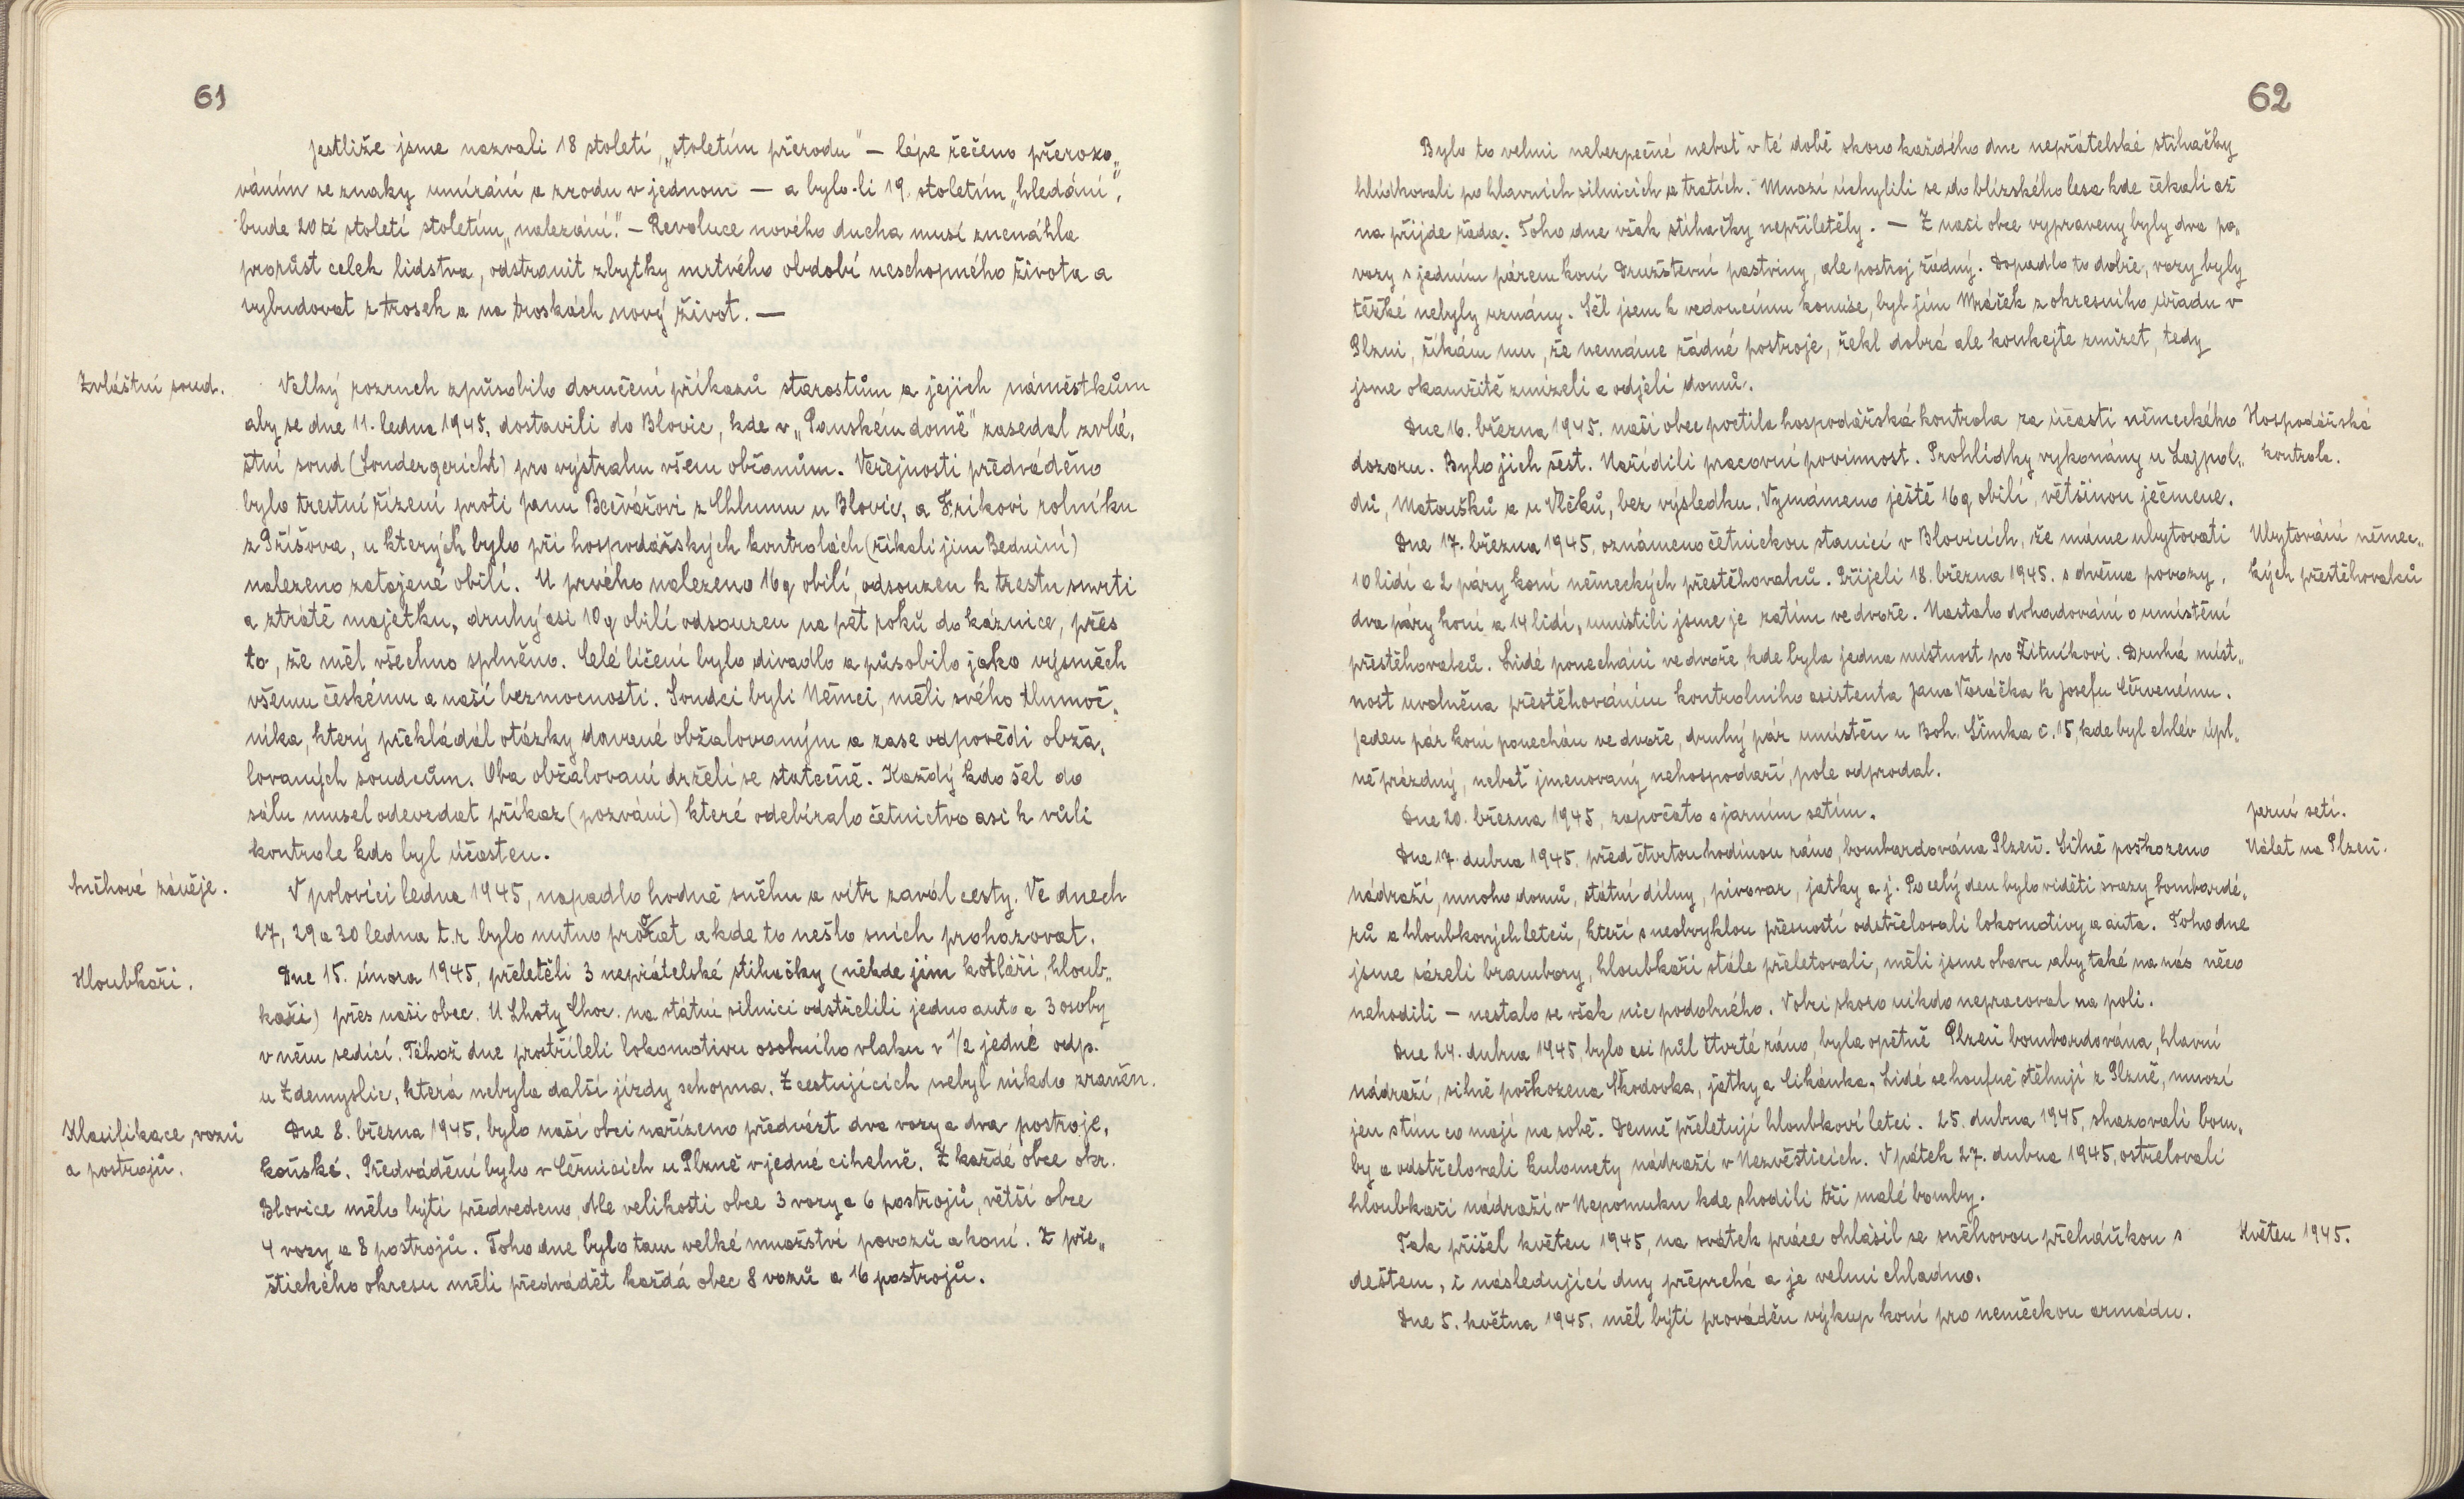 61
Jestliže jsme nazvali 18 století „stoletím přerodu" — lépe řečeno přerozo„
váním se znaky umírání a zrodu v jednom — a bylo-li 19. stoletím „hledání",
bude 20té století stoletím „nalezání". — Revoluce nového ducha musí znenáhla
prorůst celek lidstva, odstranit zbytky mrtvého období neschopného života a
vybudovat z trosek a na troskách nový život. —
Zvláštní soud.
Velký rozruch způsobilo doručení příkazů starostům a jejich náměstkům
aby se dne 11. ledna 1945, dostavili do Blovic, kde v „Panském domě" zasedal zvlá„
štní soud (Sondergericht) pro výstrahu všem občanům. Veřejnosti předváděno
bylo trestní řízení proti Janu Bečvářovi z Chlumu u Blovic, a Frikovi rolníku
z Příšova, u kterých bylo při hospodářských kontrolách (říkali jim Beduini)
nalezeno zatajené obilí. U prvého nalezeno 16q obilí, odsouzen k trestu smrti
a ztrátě majetku, druhý asi 10q obilí odsouzen na pět roků do káznice, přes
to, že měl všechno splněno. Celé líčení bylo divadlo a působilo jako výsměch
všemu českému a naší bezmocnosti. Soudci byli Němci, měli svého tlumoč„
níka, který překládál otázky davané obžalovaným a zase odpovědi obža„
lovaných soudcům. Oba obžalovaní drželi se statečně. Každý kdo šel do
sálu musel odevzdat příkaz (pozvání) které odebíralo četnictvo asi k vůli
kontrole kdo byl účasten.
Sněhové závěje.
V polovici ledna 1945, napadlo hodně sněhu a vítr zavál cesty. Ve dnech
27, 29 a 30 ledna t.r. bylo nutno prorat a kde to nešlo sních prohazovat.
Hloubkaři.
Dne 15. února 1945, přeletěli 3 nepřátelské stíhačky (někde jim kotláři, hloub„
kaři) přes naši obec. U Lhoty Choc. na státní silnici odstřelili jedno auto a 3 osoby
v něm sedící. Téhož dne prostříleli lokomotivu osobního vlaku v 1/2 jedné odp.
u Zdemyslic, která nebyla další jízdy schopna. Z cestujících nebyl nikdo zraněn.
Klasifikace vozů
a postrojů.
Dne 8. března 1945, bylo naší obci nařízeno předvézt dva vozy a dva postroje,
koňské. Předvádění bylo v Černicích u Plzně v jedné cihelně. Z každé obce okr.
Blovice mělo býti předvedeno, dle velikosti obce 3 vozy a 6 postrojů, větší obce
4 vozy a 8 postrojů. Toho dne bylo tam velké množství povozů a koní. Z pře„
štického okresu měli předvádět každá obec 8 vozů a 16 postrojů.
62
Bylo to velmi neberpečné neboť v té době skoro každého dne nepřátelské stíhačky
hlídkovali po hlavních silnicích a tratích. Mnozí úchylili se do blízského lesa kde čekali až
na příjde řáda. Toho dne však stíhačky nepřiletěly. — Z naší obce vypraveny byly dva po„
vozy s jedním párem koní Družstevní pastviny, ale postroj žádný. Dopadlo to dobře, vozy byly
těžké nebyly uznány. Šel jsem k vedoucímu komise, byl jím Mráček z okresního úřadu v
Plzni, říkám mu, že nemáme žádné postroje, řekl dobrá ale koukejte zmizet, tedy
jsme okamžitě zmizeli a odjeli domů.
Dne 16. března 1945. naši obec poctila hospodářská kontrola za účasti německého
Hospodářská
kontrola.
dozoru. Bylo jich šest. Nařídili pracovní povinnost. Prohlídky vykonány u Lajpol„
dů, Matoušků a u Vlčků, bez výsledku. Vymámeno ještě 16q obilí, většinou ječmene.
Dne 17. března 1945, oznámeno četnickou stanicí v Blovicích, že máme ubytovati
Ubytování němec„
kých přestěhovalců
10 lidí a 2 páry koní německých přestěhovalců. Přijeli 18. března 1945. s dvěma povozy,
dva páry koní a 14 lidí, umístili jsme je zatím ve dvoře. Nastalo dohadování o umístění
přestěhovalců. Lidé ponecháni ve dvoře, kde byla jedna místnost po Žitníkovi. Druhá míst„
nost uvolněna přestěhováním kontrolního asistenta Jana Voráčka k Josefu Červenému.
Jeden pár koní ponechán ve dvoře, druhý pár umístěn u Boh. Šimka č. 15, kde byl chlév úpl„
ně prázdný, neboť jmenovaný nehospodaří, pole odprodal.
Dne 20. března 1945, započato s jarním setím.
Jarní setí.
Dne 17. dubna 1945. před čtvrtou hodinou ráno, bombardována Plzeň. Silně poškozeno
Nálet na Plzeň.
nádraží, mnoho domů, státní dílny, pivovar, jatky a j. Po celý den bylo viděti svazy bombardé„
rů a hloubkových letců, kteří s neobvyklou přesností odstřelovali lokomotivy a auta. Toho dne
jsme sázeli brambory, hloubkaři stále přeletovali, měli jsme obavu aby také na nás něco
nehodili — nestalo se však nic podobného. V obci skoro nikdo nepracoval na poli.
Dne 24. dubna 1945, bylo asi půl čtvrté ráno, byla opětně Plzeň bombardována, hlavní
nádraží, silně poškozena Škodovka, jatky a Cikánka. Lidé se houfně stěhují z Plzně, mnozí
jen s tím co mají na sobě. Denně přeletují hloubkoví letci. 25. dubna 1945, shazovali bom„
by a odstřelovali kulomety nádraží v Nezvěsticích. V pátek 27. dubna 1945, ostřelovali
hloubkaři nádraží v Nepomuku kde shodili tři malé bomby.
Tak přišel květen 1945, na svátek práce ohlásil se sněhovou přeháňkou s
Květen 1945.
deštem, i následující dny přeprchá a je velmi chladno.
Dne 5. května 1945. měl býti prováděn výkup koní pro neměckou armádu.